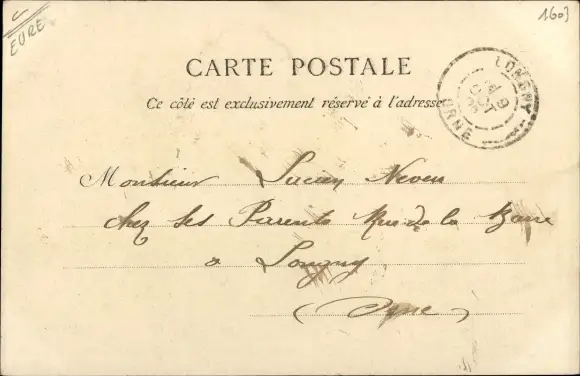 EURE
1603
CARTE POSTALE
Ce côté est exclusivement réservé à l'adresse
LONGNY
ORNE
Monsieur Lucien Neveu
chez ses Parents Rue de la Barre
a Longny
(Orne)